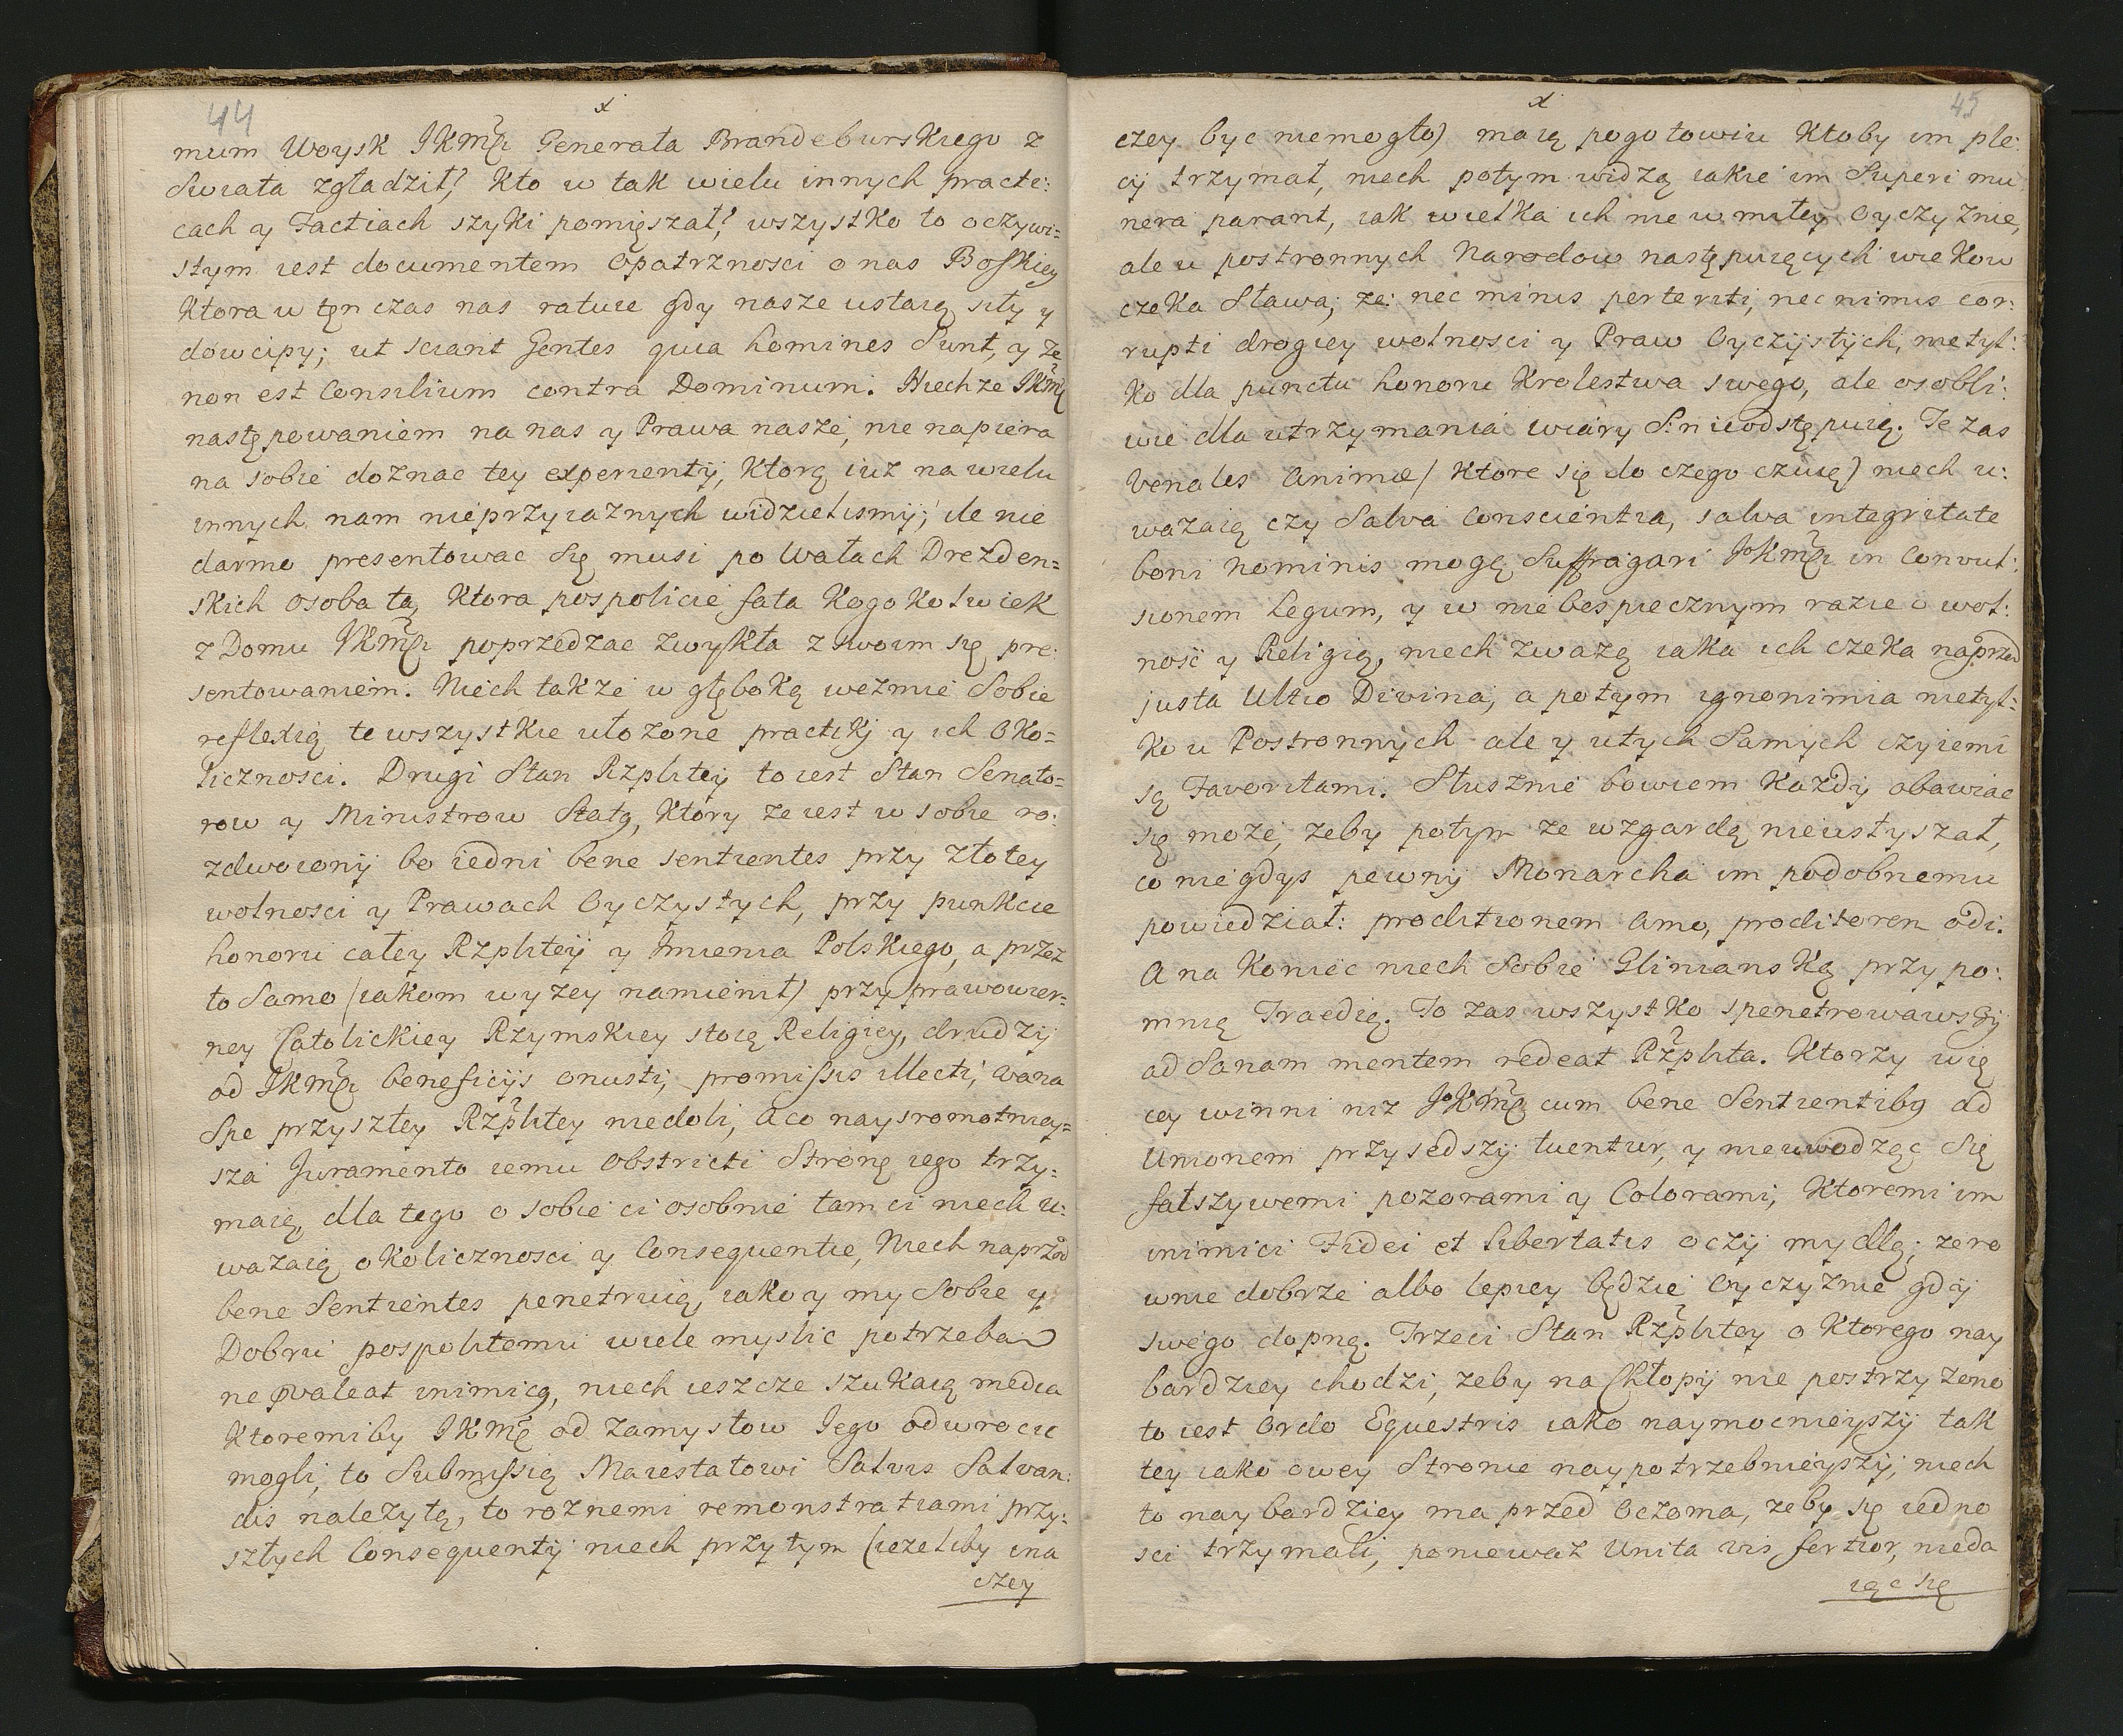 44
x
mum Woysk JKmći Generała Brandeburskiego z
Swiata zgładził? Kto w tak wielu innych practi:
cach y Factiach szyki pomięszał? wszystko to oczywi=
stym iest documentem Opatrznosci o nas Boskiey
Ktora w tęn czas nas ratuie gdy nasze ustaią siły y
dowcipy; ut sciant Gentes quia homines Sunt, y że
non est Consilium contra Dominum. Niechże JKmć
następowaniem na nas y Prawa nasze, nie napiera
na sobie doznac tey experientij, Ktorą iuz na wielu
innych nam nieprzyiaznych widzielismy; ile nie
darmo presentowac Się musi po Wałach Drezden=
skich osoba ta, Ktora pospolicie fata Kogokolwiek
z Domu JKmći poprzedzac zwykła z swoim się pre:
sentowaniem. Niech także w głęboką weźmie Sobie
reflexią te wszystkie ułożone practiki y ich Oko=
licznosci. Drugi Stan Rzplitey to iest Stan Senato=
row y Ministrow Statg, Ktory że iest w sobie ro:
zdwoiony bo iedni bene sentientes przy złotey
wolnosci y Prawach Oyczystych, przy punkcie
honoru całey Rzplitey y Imienia Polskiego, a przez
to Samo (iakom wyżey namienił) przy prawowier=
ney Catolickiey Rzymskiey stoią Religiey, drudzy
od JKmći beneficijs onusti, promissis illecti, vana
Spe przyszłey Rzplitey niedoli, a co naysromotniey=
sza Juramento iemu obstricti Stronę iego trzy:
maią, dla tego o sobie ci osobnie tamci niech u:
wazaią okolicznosci y Consequentie, Niech naprzod
bene Sentientes penetruią, iako y my Sobie y
Dobru pospolitemu wiele myslic potrzeba
ne pvaleat inimicg, niech ieszcze szukaią media
Ktoremiby JKmć od zamysłow Jego odwrocic
mogli, to Submissią Maiestatowi Salvis Salvan:
dis należytą, to roznemi remonstratiami przy:
szłych Consequentij niech przytym (iezeliby ina
czey
45
x
czey byc niemogło) maią pogotowiu Ktoby im ple:
cy trzymał, niech potym widzą iakie im Superi mu
nera parant, iak wielka ich nie w miłey Oyczyznie,
ale u postronnych Narodow następuiących wiekow
czeka Sława; że: nec minis perteriti, nec nimis cor:
rupti drogiey wolnosci y Praw Oyczystych, nietyl:
ko dla punctu honoru Krolestwa swego, ale osobli:
wie dla utrzymania wiary S: nieodstępuią. Te zas
Venales Animæ (Ktore się do czego czuią) niech u:
wazaią czy Salva Conscientia, salva integritate
boni nominis mogą Suffragari JKmći in Convul:
sionem Legum, y w niebespiecznym razie o wol:
ność y Religią, niech zważą iaka ich czeka naprzod
justa Ultio Divina, a potym ignonimia nietyl:
ko u Postronnych ale y utych Samych czyiemi
są Favoritami. Słusznie bowiem Każdy obawiac
się może, zeby potym ze wzgardą nieusłyszał,
co niegdys pewny Monarcha im podobnemu
powiedział: proditionem Amo, proditorem odi.
A na koniec niech Sobie Glinianską przypo:
mnią Traedię. To zas wszystko spenetrowawszy
ad Sanam mentem redeat Rzplita. Ktorzy wię
cey winni niz JoKmć cum bene Sentientibg ad
Unionem przysedszy tuentur, y nieuwodząc Się
fałszywemi pozorami y Colorami, Ktoremi im
inimici Fidei et Libertatis oczy mydlą; ze ro
wnie dobrze albo lepiey będzie Oyczyznie gdy
swego dopną. Trzeci Stan Rzplitey o Ktorego nay
bardziey chodzi, zeby na Chłopy nie postrzyzono
to iest Ordo Equestris iako naymocnieyszy tak
tey iako owey Stronie naypotrzebnieyszy, niech
to naybardziey ma przed Oczoma, zeby się iedno
sci trzymali, poniewaz Unita vis fortior, nieda
iąc się